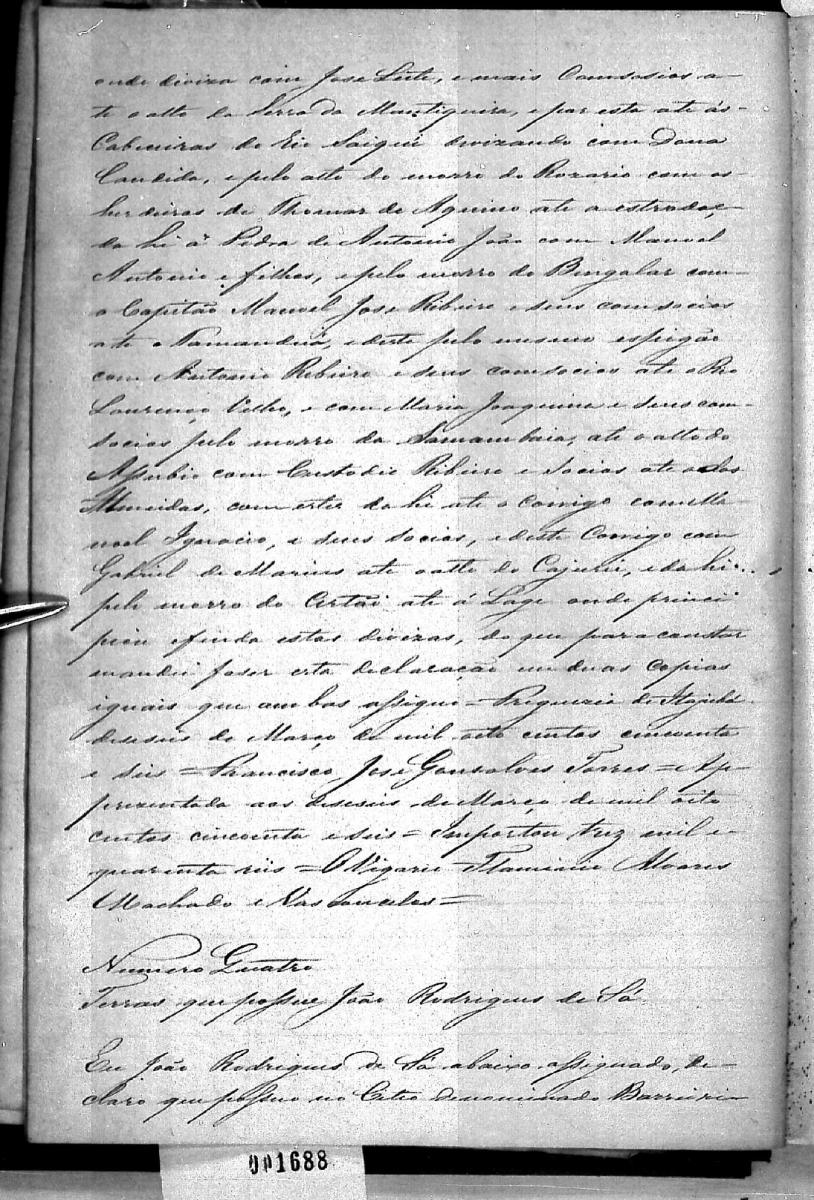 onde diviza com Jose Leite, e mais Comsosios a-
te o alto da Serra da Mantiqueira, e por esta até ás
Cabeceiras do Rio Saiguí divizando com Dona
Candida, e pelo alto do morro do Rozario com os
herdeiros de Thomas de Aquino até a estrada, e
da hi á Pedra de Antonio João com Manoel
Antonio e filhos, e pelo morro do Bengalar com
o Capitão Manoel Jose Ribeiro e seus comsocios
até o Tamanduá, e deste pelo mesmo espigão
com Antonio Ribeiro e seus comsocios até o Rio
Lourenço Velho, e com Maria Joaquina e seus com-
socios pelo morro da Samambaia, até o alto do
com Custodio Ribeiro e Socios até o dos
Almeidas, com estes da hi até o Comigo com Ma
noel Ignacio, e seus socios, e deste Comigo com
Gabriel de Marins até o alto do Cajurú, e da hi
pelo morro do Certão até á Lage onde princi
piou e finda estas divizas, do que para constar
mandei faser esta declaração em duas copias
iguais que ambas assigno = Freguezia de Itajubá
deseseis de Março de mil oito centos cincoenta
e seis = Francisco José Gonsalves Torres = Ap-
prezentada aos deseseis de Março de mil oito
centos cincoenta e seis = Importou trez mil e
quarenta reis = O Vigario = Flaminio Alvares
Machado e Vasconcelos =
Numero Quatro
Terras que possue João Rodrigues de Sá
Eu João Rodrigues de Sá abaixo assignado, de-
claro que possuo no Citio denominado Barreiro
001688